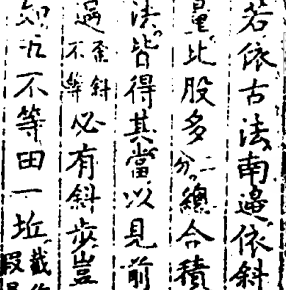 若依古法南邊依斜
量比股多二分總合積
法皆得其當以見前
歪斜不等必有斜步豈
知此不等田一坵截作